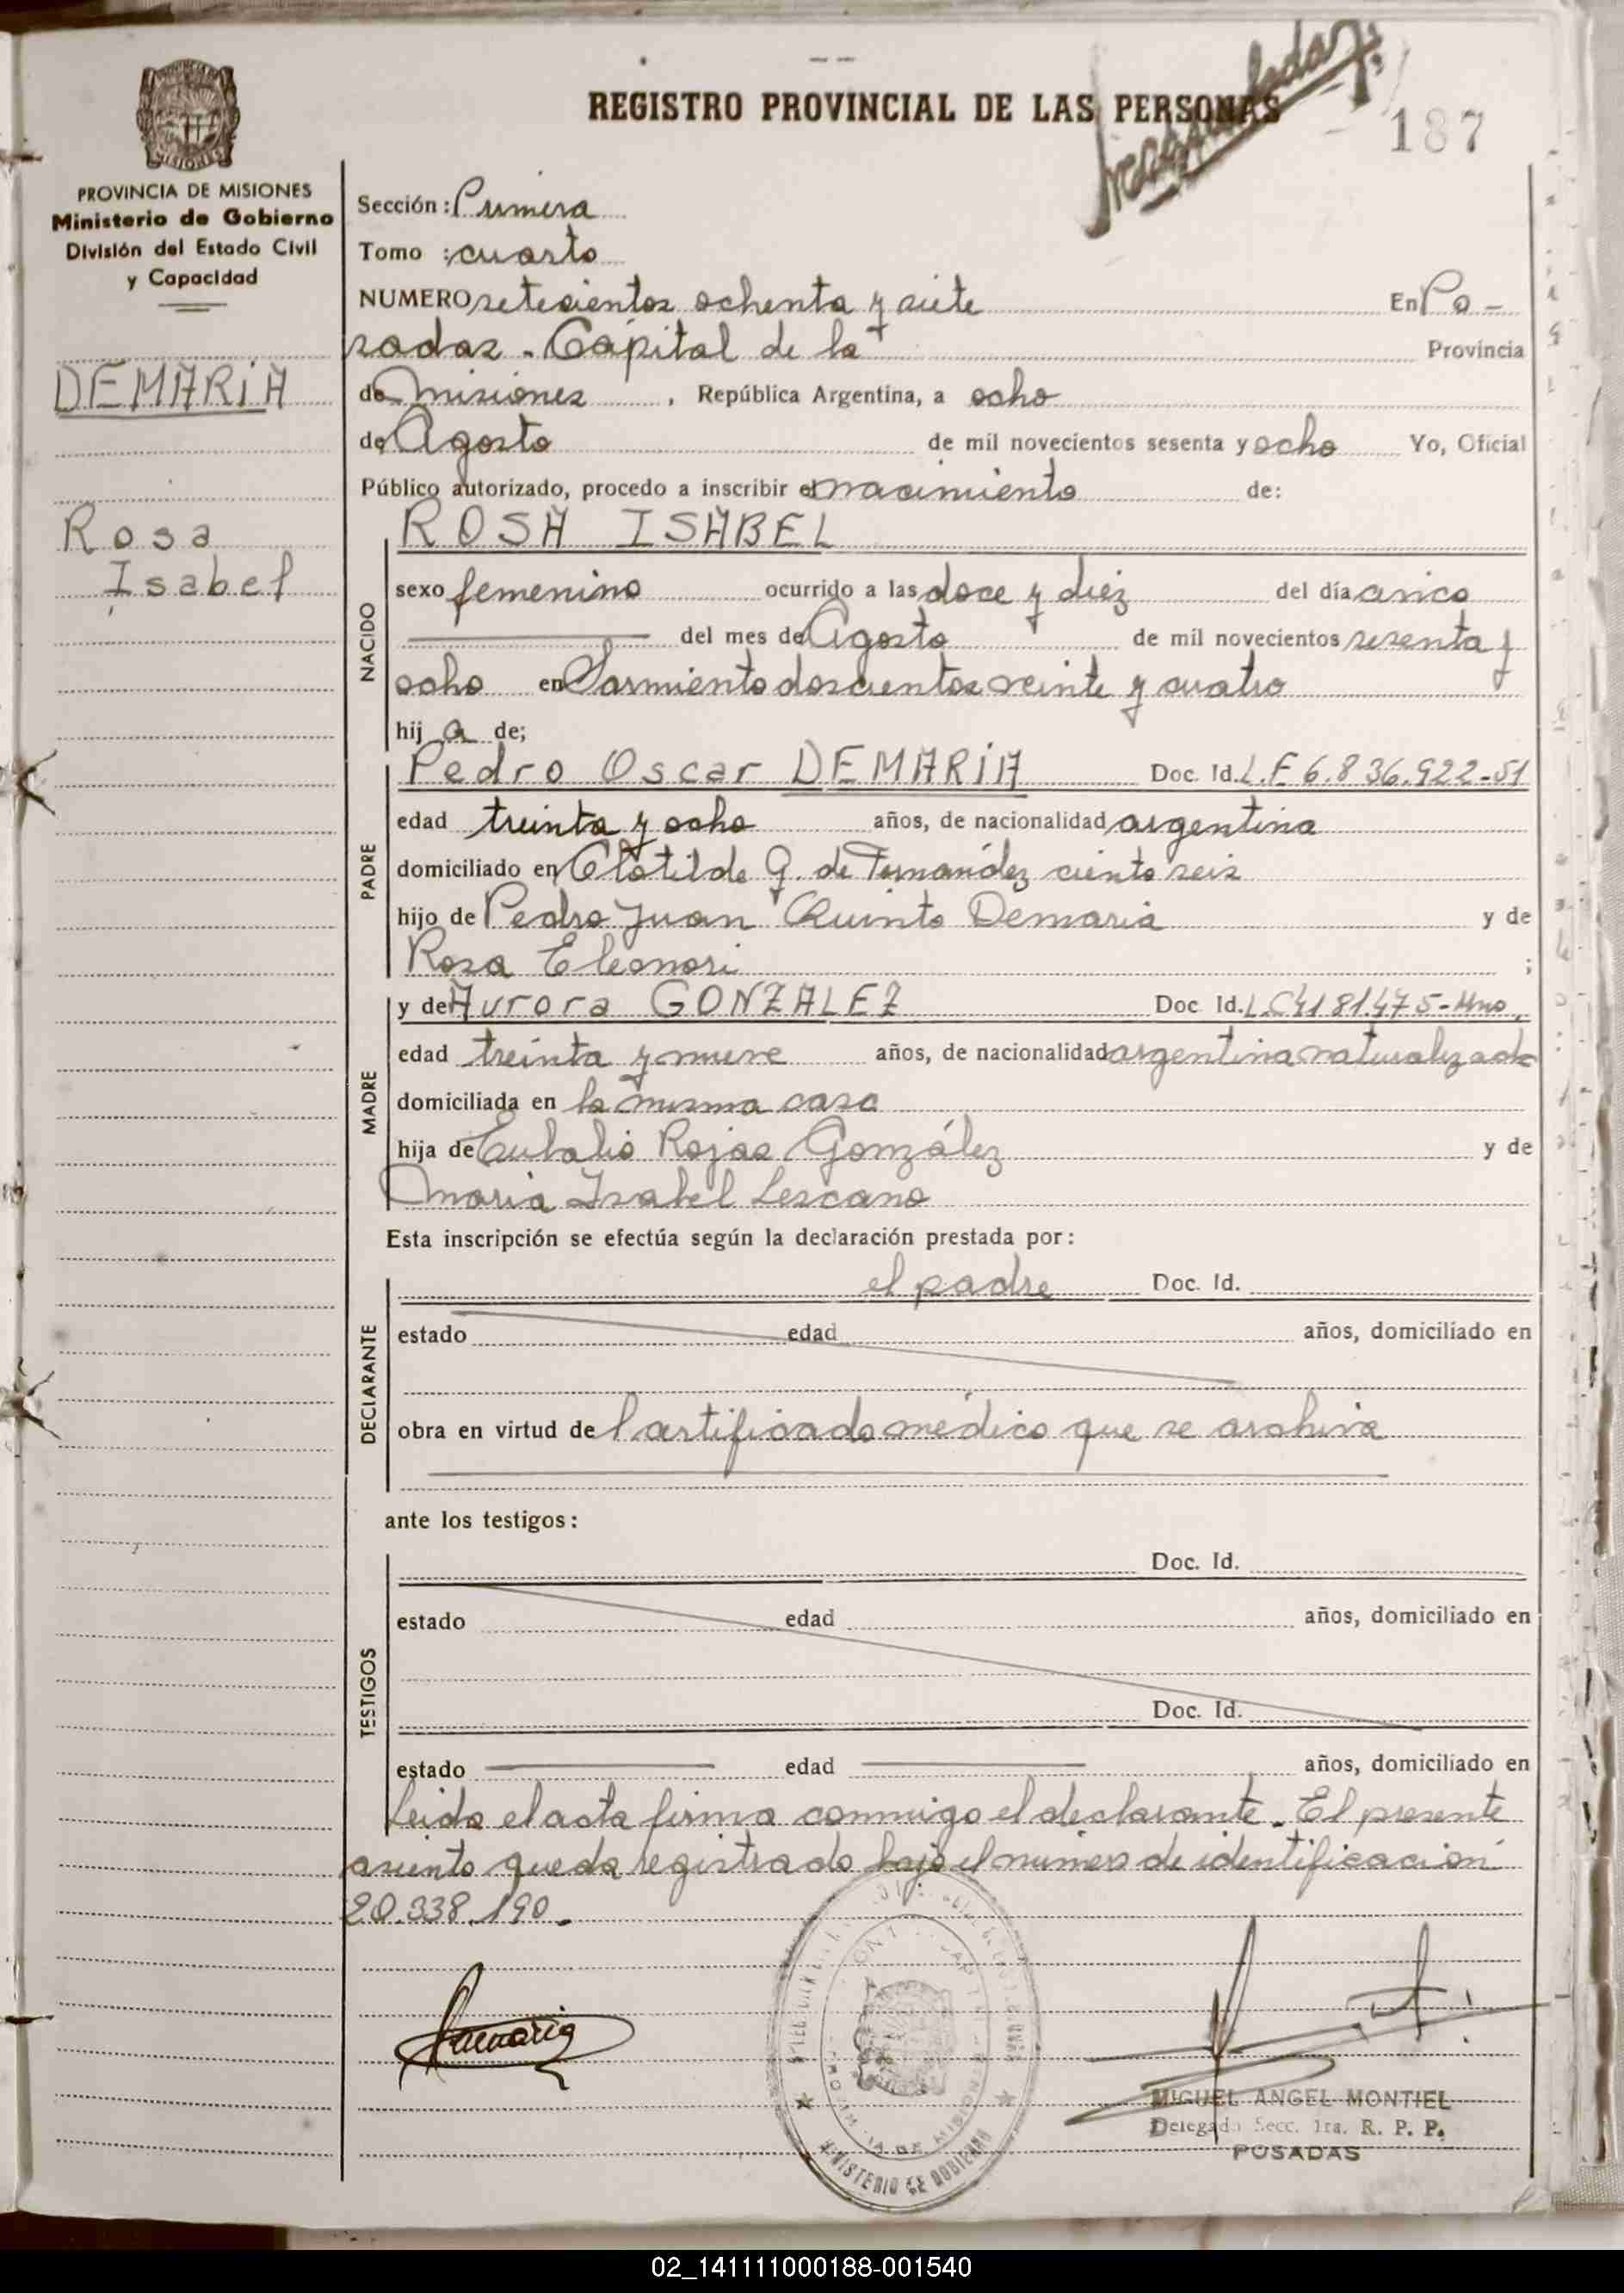 REGISTRO PROVINCIAL DE LAS PERSONAS
187
PROVINCIA DE MISIONES
Ministerio de Gobierno
División del Estado Civil
y Capacidad
DEMARIA
Rosa
Isabel
Sección: Primera
Tomo : cuarto
NUMERO setecientos ochenta y siete En Po-
sadas - Capital de la Provincia
de Misiones, República Argentina, a ocho
de Agosto de mil novecientos sesenta y ocho Yo, Oficial
Público autorizado, procedo a inscribir el nacimiento de:
NACIDO
ROSA ISABEL
sexo femenino ocurrido a las doce y diez del día cinco
del mes de Agosto de mil novecientos sesenta y
ocho en Sarmiento doscientos veinte y cuatro
hij a de;
PADRE
Pedro Oscar DEMARIA Doc. Id. L.E 6.836.922-51
edad treinta y ocho años, de nacionalidad argentina
domiciliado en Clotilde G. de Fernández ciento seis
hijo de Pedro Juan Quinto Demaria y de
Rosa Eleonori ;
MADRE
y de Aurora GONZALEZ Doc Id. L.C 4181.475-Mno.
edad treinta y nueve años, de nacionalidad argentina naturalizada
domiciliada en la misma casa
hija de Eubalio Rojas González y de
Maria Isabel Lescano
Esta inscripción se efectúa según la declaración prestada por:
DECLARANTE
el padre Doc. Id.
estado edad años, domiciliado en
obra en virtud de certificado médico que se archiva
ante los testigos:
TESTIGOS
Doc. Id.
estado edad años, domiciliado en
Doc. Id.
estado edad años, domiciliado en
Leida el acta firma conmigo el declarante. El presente
asiento queda registrado bajo el numero de identificación
20.338.190.
Demaria
MINISTERIO DE GOBIERNO
MIGUEL ANGEL MONTIEL
Delegado Secc. 1ra. R. P. P.
POSADAS
02_141111000188-001540